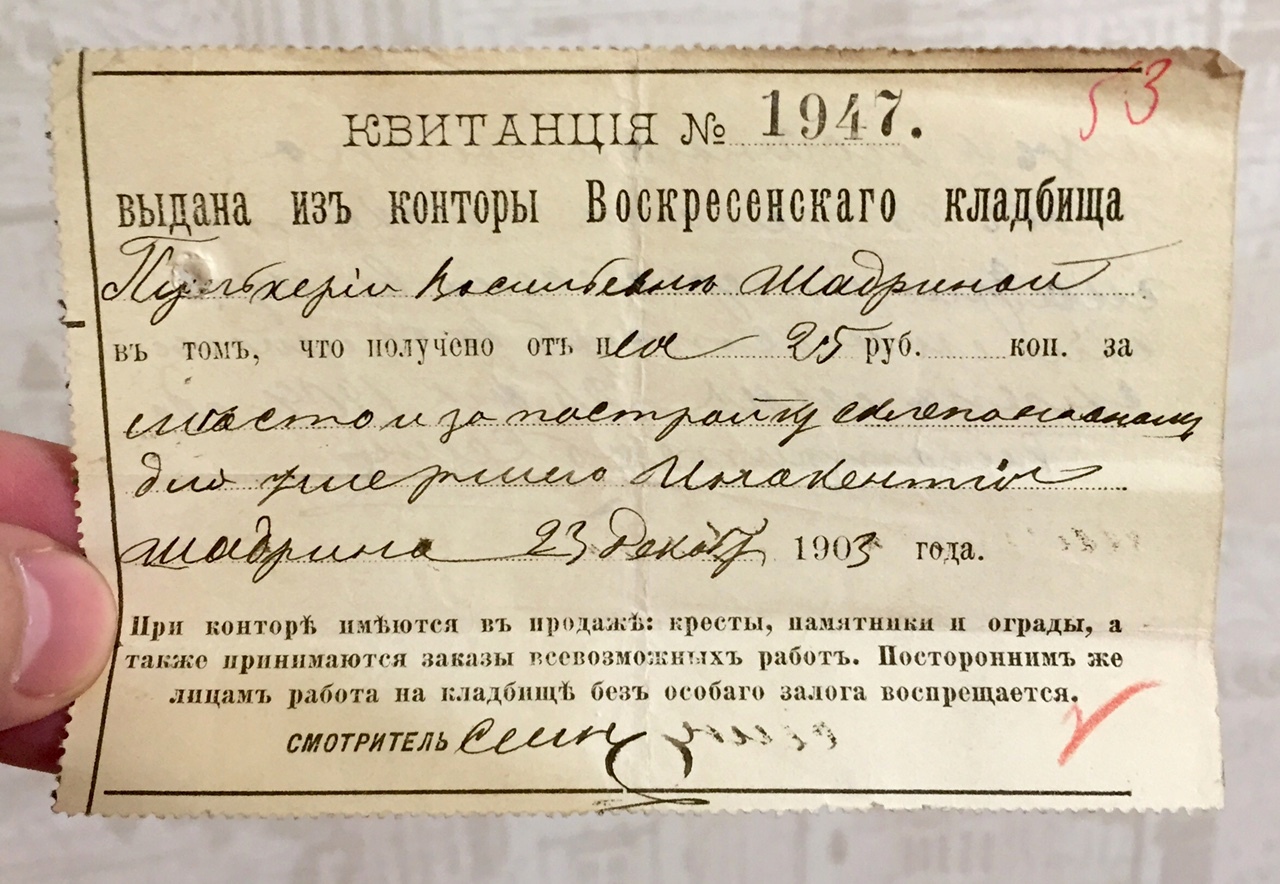 53
КВИТАНЦІЯ № 1947.
выдана изъ конторы Воскресенскаго кладбища
Пульхеріи Васильевнѣ Шадриной
въ томъ, что получено отъ нея 25 руб. коп. за
мѣсто и за постройку склепа
для умершего Инокентія
Шадрина 23 Декаб 1903 года.
При конторѣ имѣются въ продажѣ: кресты, памятники и ограды, а
также принимаются заказы всевозможныхъ работъ. Постороннимъ же
лицамъ работа на кладбищѣ безъ особаго залога воспрещается.
СМОТРИТЕЛЬ